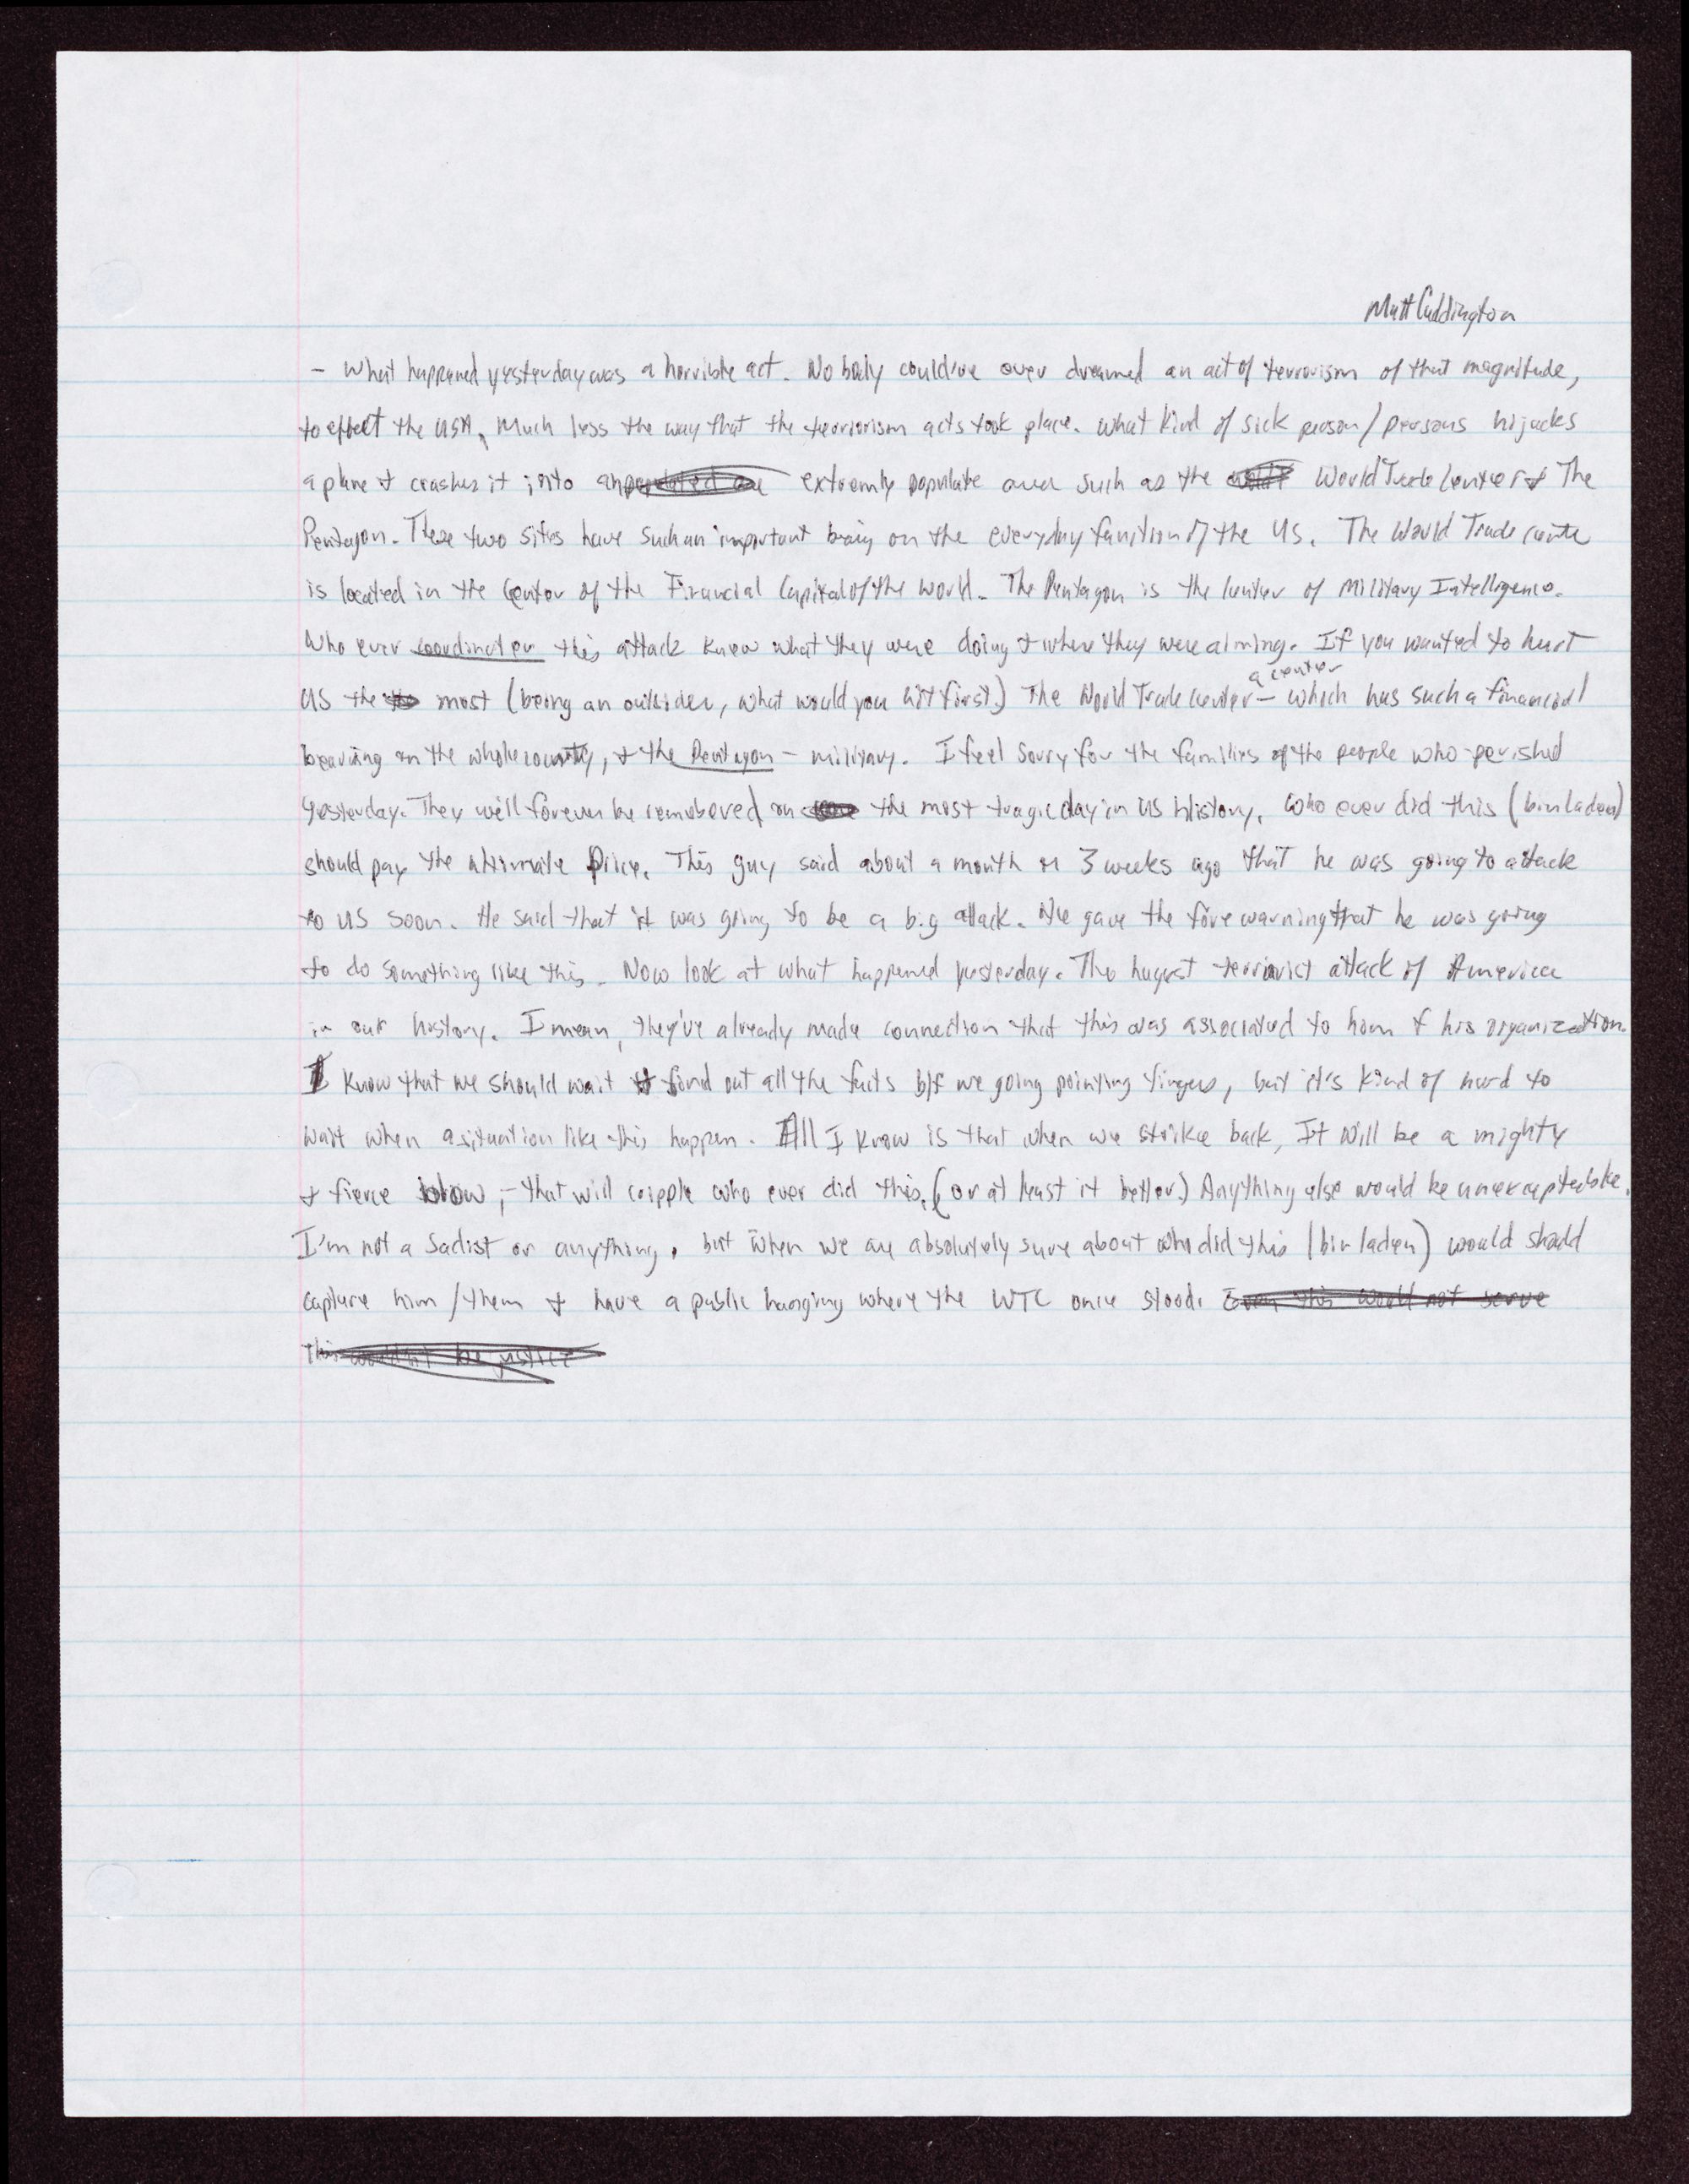 Matt Cuddington
- What happened yesterday was a horrible act. No body could've ever dreamed an act of terrorism of that magnitude,
to effect the USA, Much less the way that the terrorism acts took place. What kind of sick person/persons hijacks
a plane & crashes it into an populated are extremly populate area such as the World Trade Center & The
Pentagon. These two sites have such an important being on the everyday function of the US. The World Trade cente
is located in the Center of the Financial Capital of the World. The Pentagon is the center of Military Intelligence.
Who ever coordinated this attack knew what they were doing & where they were aiming. If you wanted to hurt
a center
US the most (being an outsider, what would you hit first.) The World Trade Center - which has such a financial
bearing on the whole country, & the Pentagon - military. I feel sorry for the families of the people who perished
yesterday. They will forever be remebered on the most tragic day in US history. Who ever did this (bin laden)
should pay the ultimate price. This guy said about a month or 3 weeks ago that he was going to attack
to US soon. He said that it was going to be a big attack. He gave the fore warning that he was going
to do something like this. Now look at what happened yesterday. The hugest terriorist attack of America
in our history. I mean, they've already made connection that this was associated to him & his organization.
I know that we should wait to find out all the facts b/f we going pointing fingers, but it's kind of hard to
wait when a situation like this happen. All I know is that when we strike back, It Will be a mighty
& fierce blow, - that will cripple who ever did this. (or at least it better.) Anything else would be unexceptable.
I'm not a Sadist or anything, but when we are absolutely sure about who did this (bin laden) would should
capture him/them & have a public hanging where the WTC once stood. Even this would not serve
This wouldn't be justice